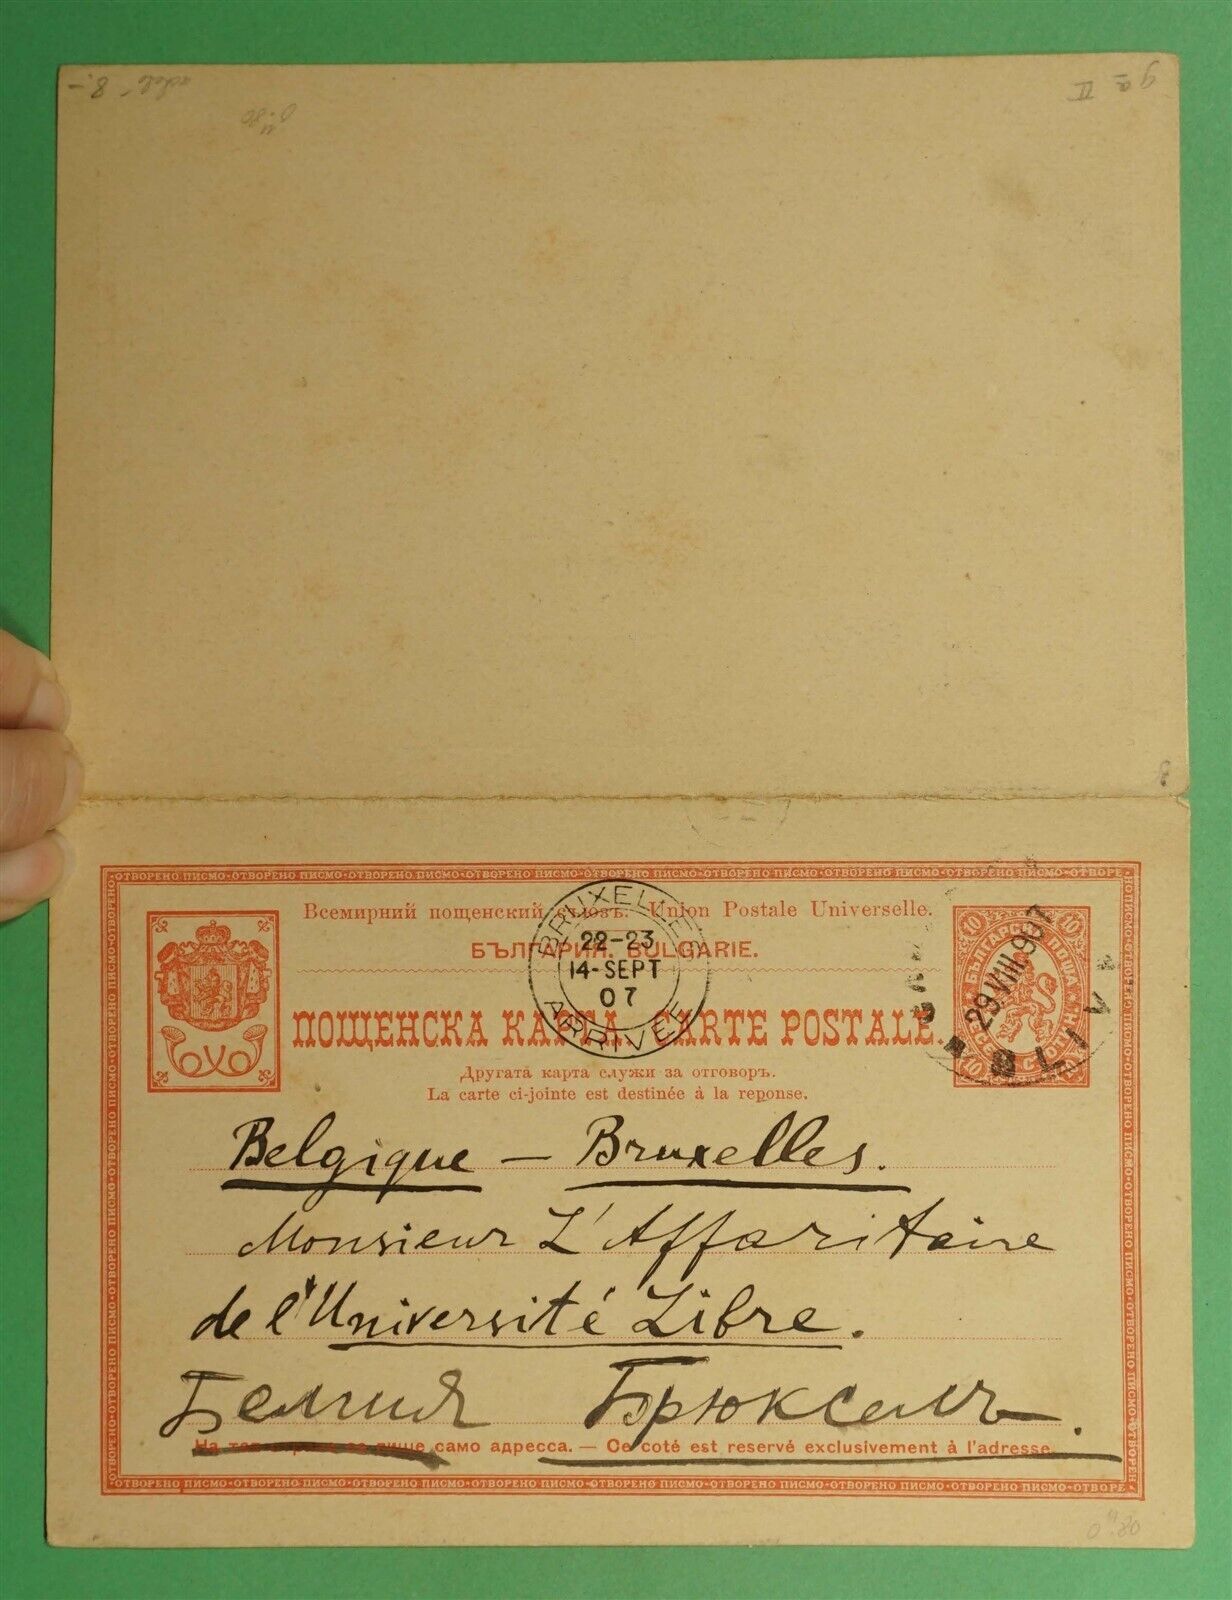 Всемирний пощенский съюзъ. Union Postale Universelle.
БЪЛГАРИЯ. BULGARIE.
ПОЩЕНСКА КАРТА. CARTE POSTALE.
Другата карта служи за отговоръ.
La carte ci-jointe est destinée à la reponse.
BRUXELLES
22-23
14-SEPT
07
ARRIVÉE
10 БЪЛГАРСКА ПОЩА 10
10 ДЕСЕТЬ СТОТИНКИ 10
29.VIII.907
Belgique – Bruxelles.
Monsieur L'Affaritaire
de l'Université Libre.
Белгия Брюксель.
На тая страна се пише само адресса. — Ce coté est reservé exclusivement à l'adresse.
ОТВОРЕНО ПИСМО·ОТВОРЕНО ПИСМО·ОТВОРЕНО ПИСМО
0.80